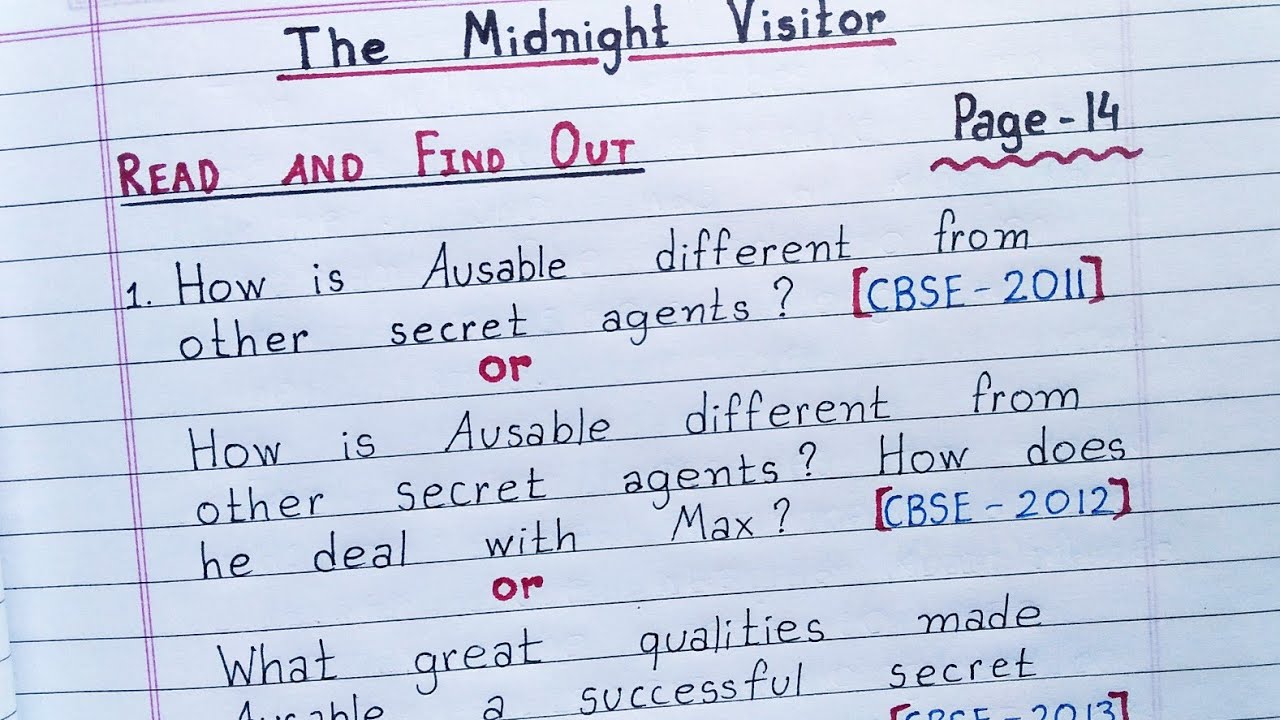 The Midnight Visitor
Page - 14
READ AND FIND OUT
1. How is Ausable different from
other secret agents? [CBSE - 2011]
or
How is Ausable different from
other secret agents? How does
he deal with Max? [CBSE - 2012]
or
What great qualities made
Ausable a successful secret
[CBSE - 2013]